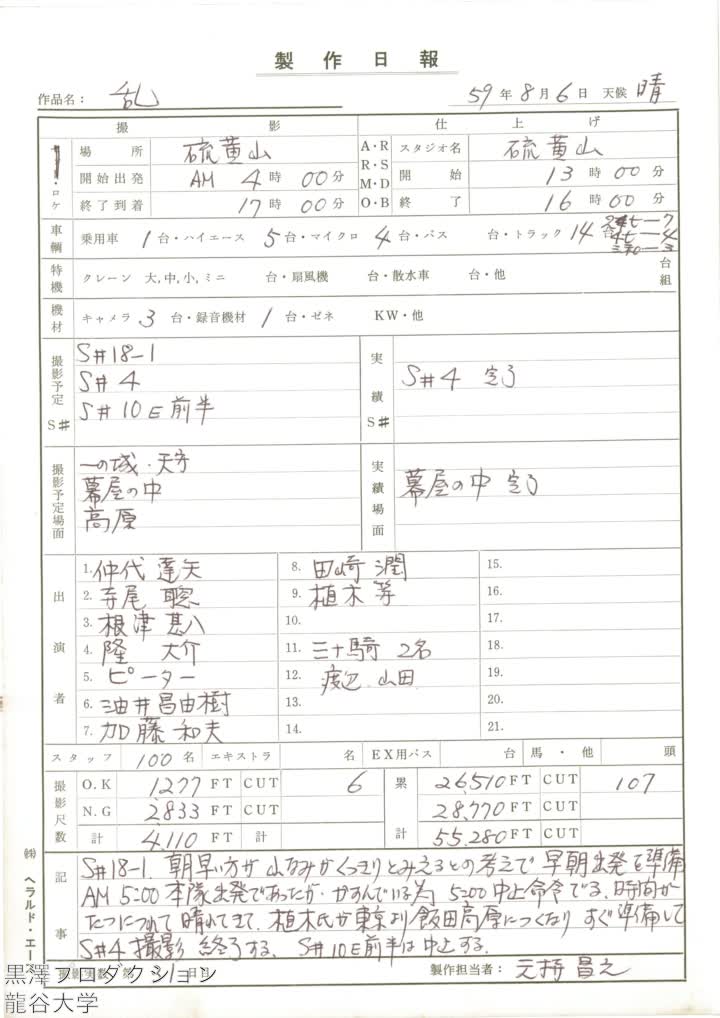 製作日報
作品名： 乱 59年8月6日 天候 晴
撮影 仕上げ
・ロケ 場所 硫黄山 A・R R・S M・D O・B スタジオ名 硫黄山
開始出発 AM 4時00分 開始 13時00分
終了到着 17時00分 終了 16時00分
車輛 乗用車 1台・ハイエース 5台・マイクロ 4台・バス 台・トラック 14
特機 クレーン 大,中,小,ミニ 台・扇風機 台・散水車 台・他 台組
機材 キャメラ 3台・録音機材 1台・ゼネ KW・他
撮影予定S# 実績S#
S#18-1
S#4 S#4 完了
S#10E前半
撮影予定場面 実績場面
一の城・天守
幕屋の中 幕屋の中 完了
高原
出演者
1. 仲代達矢 8. 田崎潤 15.
2. 寺尾聰 9. 植木等 16.
3. 根津甚八 10. 17.
4. 隆大介 11. 三十騎 2名 18.
5. ピーター 12. 渡辺 山田 19.
6. 油井昌由樹 13. 20.
7. 加藤和夫 14. 21.
スタッフ 100名 エキストラ 名 EX用バス 台 馬・他 頭
撮影尺数 O.K 1277 FT CUT 6 累計 26,510 FT CUT 107
N.G 2,833 FT 28,770 FT
計 4,110 FT 計 55,280 FT
記事
S#18-1. 朝早い方が山なみがくっきりとみえるとの考えで早朝出発を準備
AM 5:00 本隊出発であったが、かすんでいる為 5:00 中止命令でる、時間が
たつにつれて晴れてきて、植木氏が東京より飯田高原につくなりすぐ準備して
S#4 撮影 終了する、S#10E前半は中止する、
撮影実数 第 31日目 製作担当者： 元持昌之
㈱ヘラルド・エース
黒澤プロダクション
龍谷大学